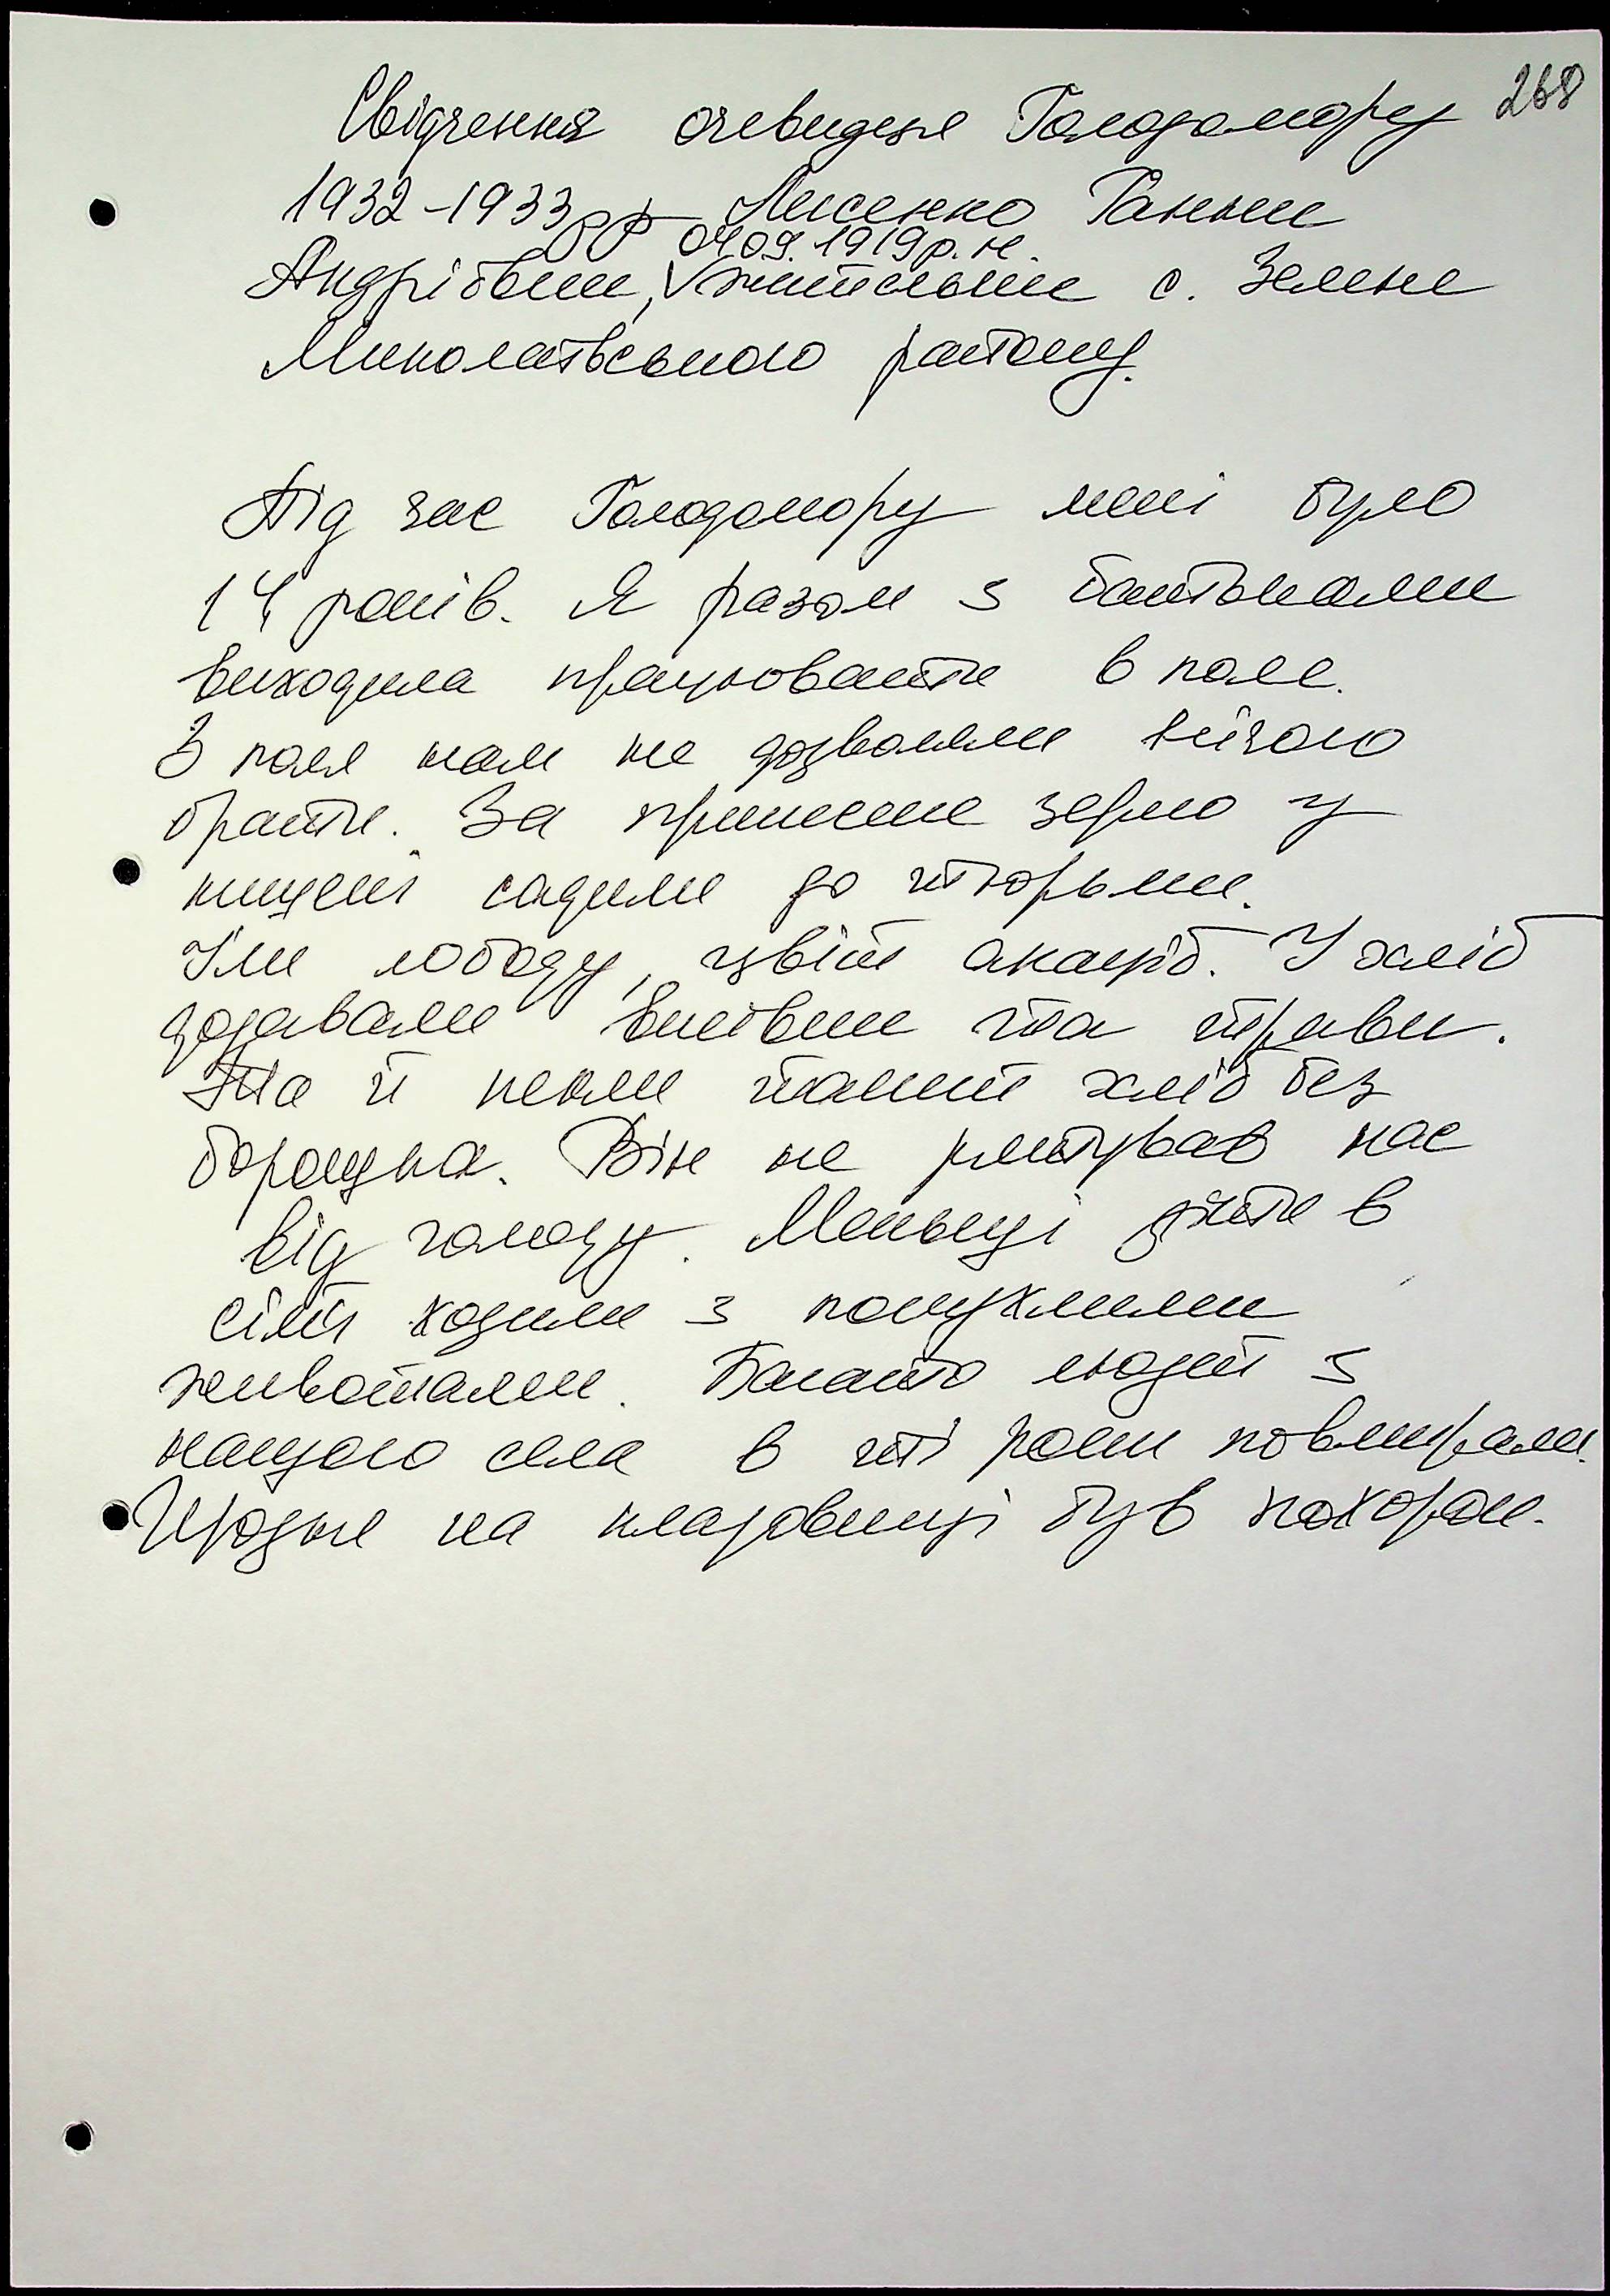 268
Свідчення очевидця Голодомору
1932-1933рр Лисенко Ганни
04.09.1919р.н.
Андріївни, жительки с. Зелене
Миколаївського району.
Під час Голодомору мені було
14 років. Я разом з батьками
виходила працювати в поле.
З поля нам не дозволяли нічого
брати. За принесене зерно у
кишені садили до тюрьми.
Їли лободу, цвіт акацій. У хліб
додавали висівки та трави.
Та й пекли такий хліб без
борошна. Він не рятував нас
від голоду. Менші діти в
сім'ї ходили з попухлими
животами. Багато людей з
нашого села в ті роки повмирали.
Щодня на кладовищі був похорон.